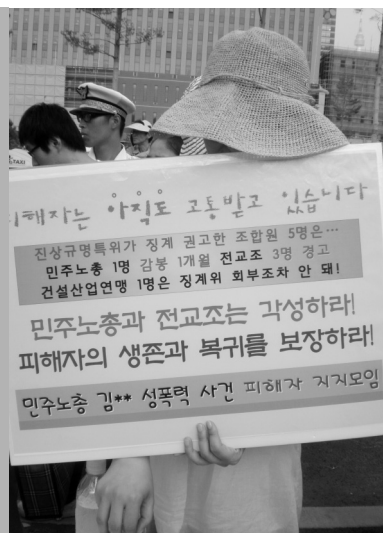 피해자는 아직도 고통받고 있습니다
진상규명특위가 징계 권고한 조합원 5명은…
민주노총 1명 감봉 1개월 전교조 3명 경고
건설산업연맹 1명은 징계위 회부조차 안 돼!
민주노총과 전교조는 각성하라!
피해자의 생존과 복귀를 보장하라!
민주노총 김** 성폭력 사건 피해자 지지모임
TAXI